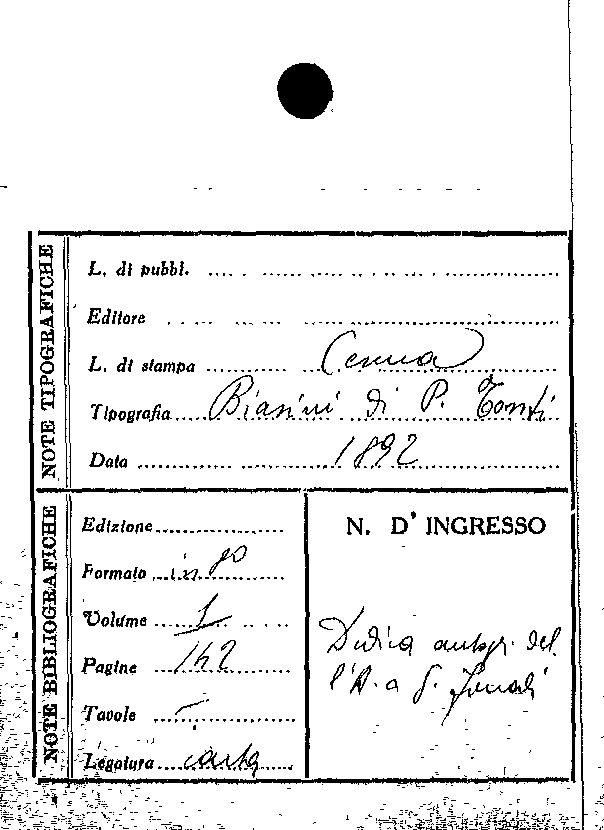 NOTE TIPOGRAFICHE
L. di pubbl.
Editore
L. di stampa
Tipografia Biasini di P. Tonti
Data 1892
NOTE BIBLIOGRAFICHE
Edizione
Formato in 8º
Volume 1
Pagine 142
Tavole –
Legatura carta
N. D' INGRESSO
Dedica autogr. del
l'A. a G.